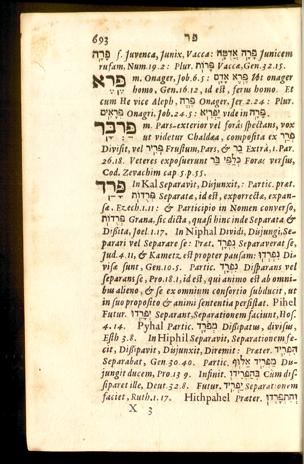 693 פר
פָּרָה f. Juvenca, Junix, Vacca: פָּרָה אֲדֻמָּה Junicem
rufam. Num. 19.2: Plur. פָּרוֹת Vaccæ, Gen. 32.15.
פֶּרֶא m. Onager, Job. 6.5: פֶּרֶא אָדָם Ut onager
homo, Gen. 16.12, id est, ferus homo. Et
cum He vice Aleph, פֶּרֶה Onager, Jer 2.24: Plur.
פְּרָאִים Onagri, Job. 24.5: יַפְרִיא vide in פָּרָה.
פַּרְבָּר m. Pars exterior vel foràs spectans, vox
ut videtur Chaldæa, composita ex פרד
Divisit, vel פריר Frustum, Pars, & בַּר Extrà, 1. Par.
26.18. Veteres exposuerunt כְּלַפֵּי בַּר Foræ versus,
Cod. Zevachim cap 5. p. 55.
פָּרַד In Kal Separavit, Dijunxit: Partic. prat.
פְּרֻדוֹת Separata, id est, exporrecta, expan-
sa. Ezech. 1. 11: & Participio in Nomen converso,
פְּרֻדוֹת Grana, sic dicta, quasi hinc inde Separata &
Disita, Joel. 1. 17. In Niphal Dividi, Dijungi, Se-
parari vel Separare se: Prat. נִפְרַד Separaverat se,
Jud. 4. 11, & Kametz est propter pausam: נִפְרְדוּ Di-
visæ sunt, Gen. 10. 5. Partic. נִפְרָד Disparans vel
separans se, Pro. 18. 1, id est, qui animo est ab omni-
bus alieno, & se ex omnium consortio subducit, ut
in suo proposito & animi sententia persistat. Pihel
Futur. יְפָרֵדוּ Separant, Separationem faciunt, Hos.
4. 14. Pyhal Partic. מְפֹרָד Dissipatus, divisus,
Esth 3. 8. In Hiphil Separavit, Separationem fe-
cit, Dissipavit, Dijunxit, Diremit: Prater. הִפְרִיד
Separabat, Gen 30. 40. Partic. מַפְרִיד אַלּוּף Di-
jungit ducem, Pro. 13 9. Infinit. בְּהַפְרִידוֹ Cum dis-
sparet ille, Deut. 32. 8. Futur. יַפְרִיד Separationem
faciet, Ruth. 1. 17. Hithpahel Prater. וְהִתְפָּרְדוּ
X 3